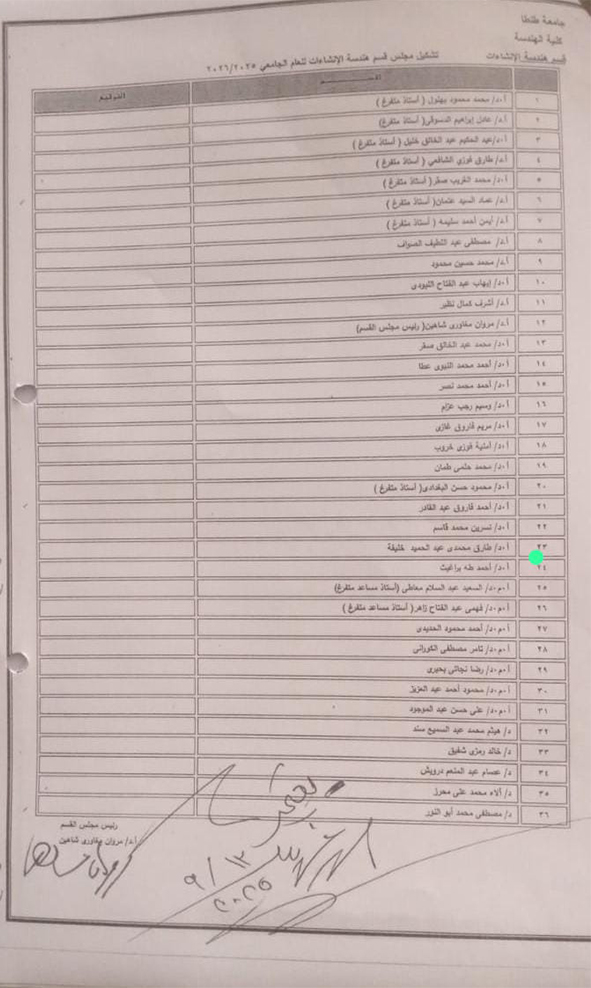 جامعة طنطا
كلية الهندسة
قسم هندسة الإنشاءات
تشكيل مجلس قسم هندسة الإنشاءات للعام الجامعي ٢٠٢٦/٢٠٢٥
الاســـــم التوقيع
١ أ.د/ محمد محمود بهلول ( أستاذ متفرغ )
٢ أ.د/ عادل إبراهيم الدسوقى( أستاذ متفرغ)
٣ أ.د/عبد الحكيم عبد الخالق خليل ( أستاذ متفرغ )
٤ أ.د/ طارق فوزي الشافعي ( أستاذ متفرغ )
٥ أ.د/ محمد الغريب صقر( أستاذ متفرغ )
٦ أ.د/ عماد السيد عتمان( أستاذ متفرغ )
٧ أ.د/ أيمن أحمد سليمه ( أستاذ متفرغ )
٨ أ.د/ مصطفى عبد اللطيف الصواف
٩ أ.د/ محمد حسين محمود
١٠ أ.د/ إيهاب عبد الفتاح اللبودى
١١ أ.د/ أشرف كمال نظير
١٢ أ.د/ مروان مغاورى شاهين( رئيس مجلس القسم)
١٣ أ.د/ محمد عبد الخالق صقر
١٤ أ.د/ أحمد محمد النبوى عطا
١٥ أ.د/ أحمد محمد نصر
١٦ أ.د/ وسيم رجب عزام
١٧ أ.د/ مريم فاروق غازى
١٨ أ.د/ أمنية فوزى خروب
١٩ أ.د/ محمد حلمى طمان
٢٠ أ.د/ محمود حسن البغدادى( أستاذ متفرغ )
٢١ أ.د/ أحمد فاروق عبد القادر
٢٢ أ.د/ نسرين محمد قاسم
٢٣ أ.د/ طارق محمدى عبد الحميد خليفة
٢٤ أ.د/ أحمد طه براغيث
٢٥ أ.م.د/ السعيد عبد السلام معاطى (أستاذ مساعد متفرغ)
٢٦ أ.م.د/ فهمى عبد الفتاح زاهر( أستاذ مساعد متفرغ )
٢٧ أ.م.د/ أحمد محمود الحديدى
٢٨ أ.م.د/ تامر مصطفى الكورانى
٢٩ أ.م.د/ رضا نجاتى بحيرى
٣٠ أ.م.د/ محمود أحمد عبد العزيز
٣١ أ.م.د/ على حسن عبد الموجود
٣٢ د/ هيثم محمد عبد السميع سند
٣٣ د/ خالد رمزى شفيق
٣٤ د/ عصام عبد المنعم درويش
٣٥ د/ ألاء محمد على محرز
٣٦ د/ مصطفى محمد أبو النور
رئيس مجلس القسم
أ.د/ مروان مغاورى شاهين
٩/١٣
٢٠٢٥